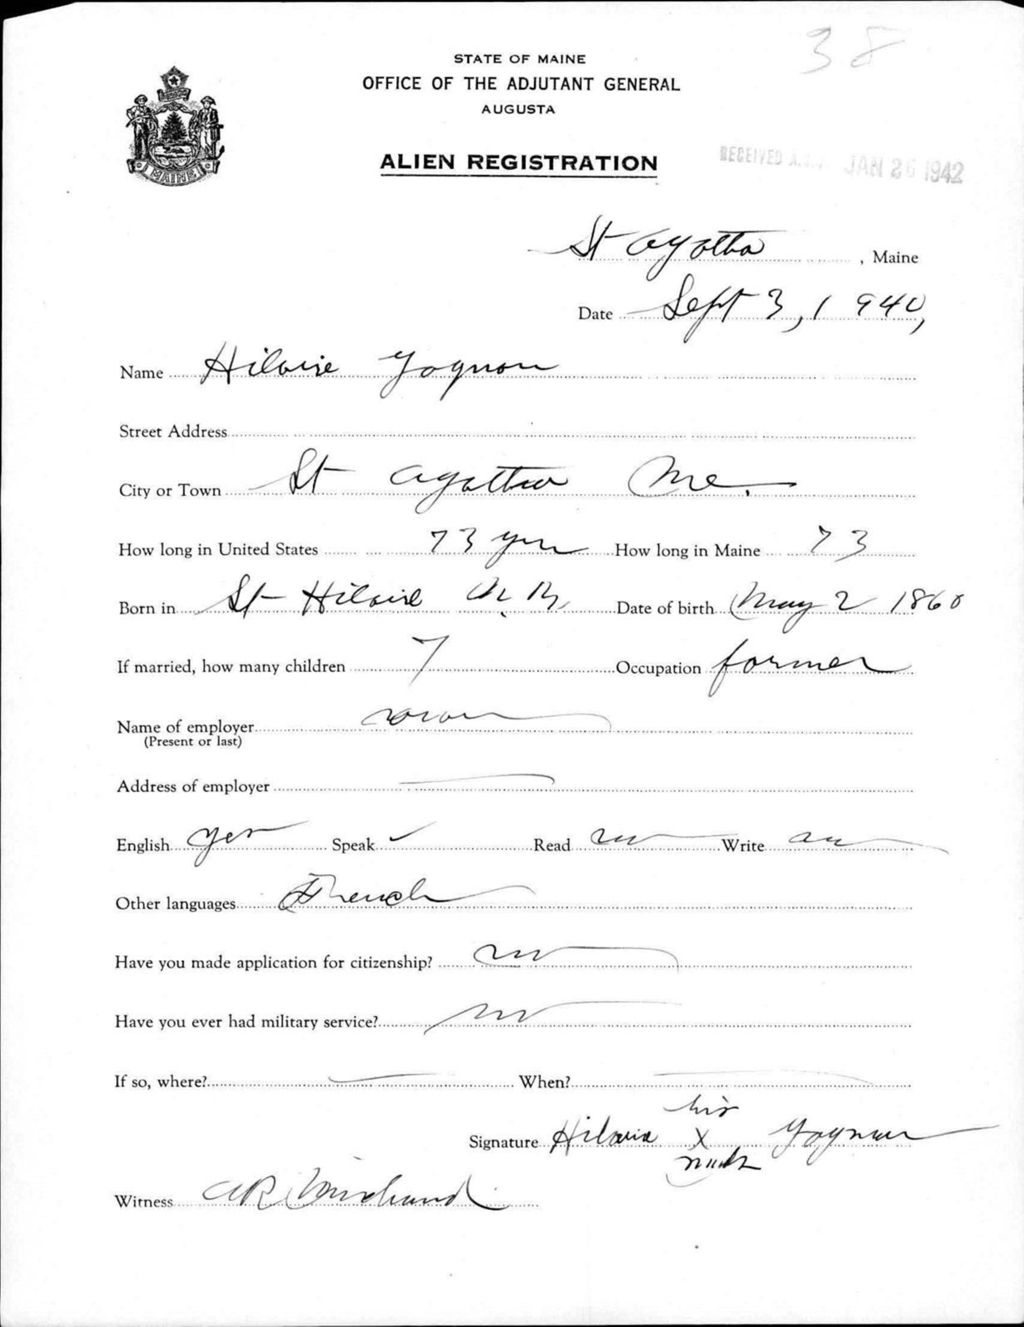 38
STATE OF MAINE
OFFICE OF THE ADJUTANT GENERAL
AUGUSTA
ALIEN REGISTRATION
RECEIVED A.G.O. JAN 26 1942
MAINE
St Agatha, Maine
Date Sept 3, 1940,
Name Hilaire Yognon
Street Address
City or Town St Agatha Me.
How long in United States 73 yrs How long in Maine 73
Born in St Hilaire N.B. Date of birth May 2 1860
If married, how many children 7 Occupation farmer
Name of employer
(Present or last)
Address of employer
English yes Speak ✓ Read no Write no
Other languages French
Have you made application for citizenship? no
Have you ever had military service? no
If so, where? When?
his
Signature Hilaire X Yognon
mark
Witness